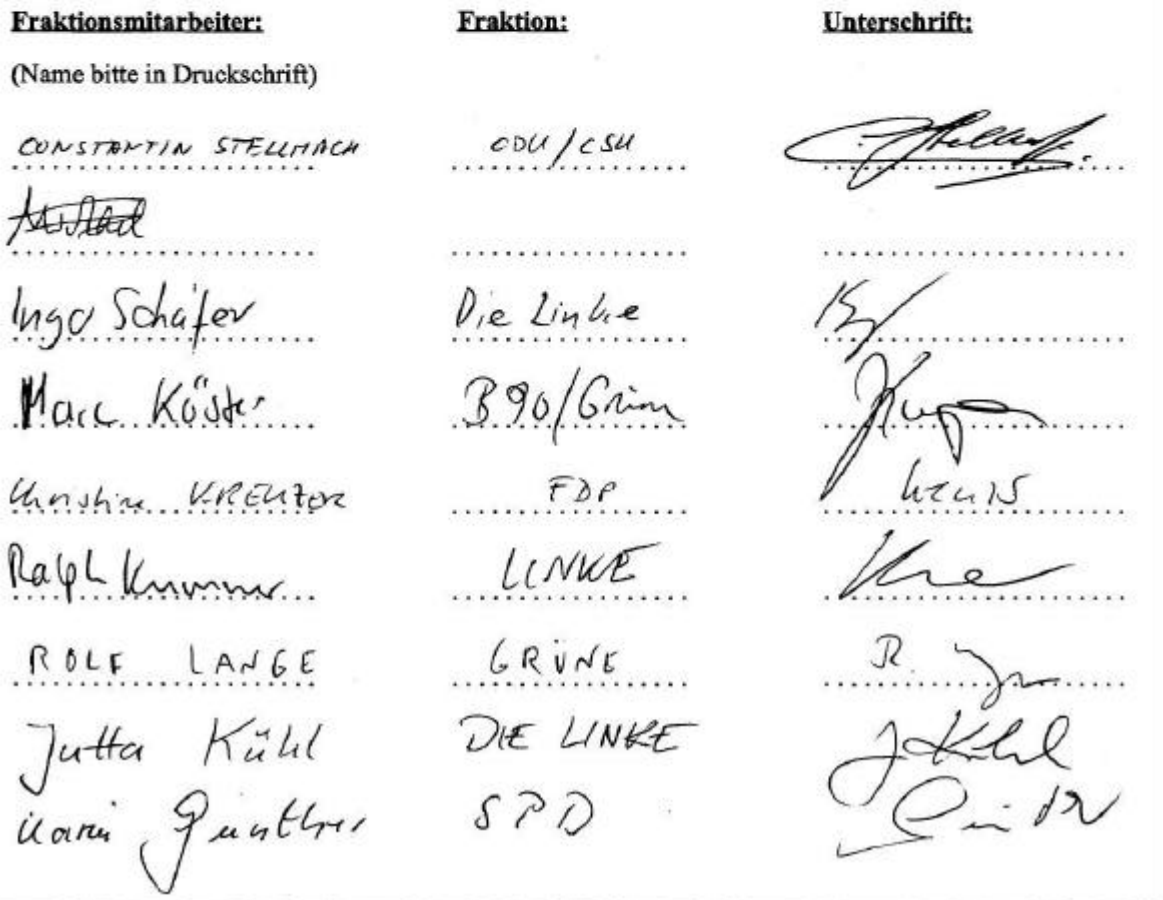 Fraktionsmitarbeiter: Fraktion: Unterschrift:
(Name bitte in Druckschrift)
CONSTANTIN STELLMACH CDU/CSU
Ingo Schäfer Die Linke
Marc Köster B90/Grüne
Christine KREUTZER FDP
Ralph Kummer LINKE
ROLF LANGE GRÜNE R.
Jutta Kühl DIE LINKE J Kühl
Karin Günther SPD